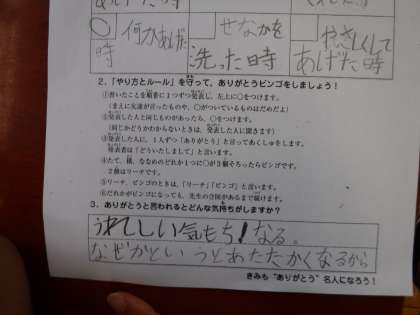 何かあげた時
せなかを洗った時
やさしくしてあげた時
2.「やり方とルール」を守って、ありがとうビンゴをしましょう！
①書いたことを順番に1つずつ発表し、左上に○をつけます。
（まえに友達が言ったものや、○がついているものはだめだよ）
②発表した人と同じものがあったら、○をつけます。
（同じかどうかわからないときは、発表した人に聞きます）
③発表した人に、1人ずつ「ありがとう」と言ってあくしゅをします。
発表者は「どういたしまして」と言います。
④たて、横、ななめのどれか1つに○が3個そろったらビンゴです。
2個はリーチです。
⑤リーチ、ビンゴのときは、「リーチ」「ビンゴ」と言います。
⑥だれかがビンゴになっても、先生の合図があるまで続けます。
3.ありがとうと言われるとどんな気持ちがしますか？
うれしい気もち！なる。
なぜかというとあたたかくなるから
きみも“ありがとう”名人になろう！